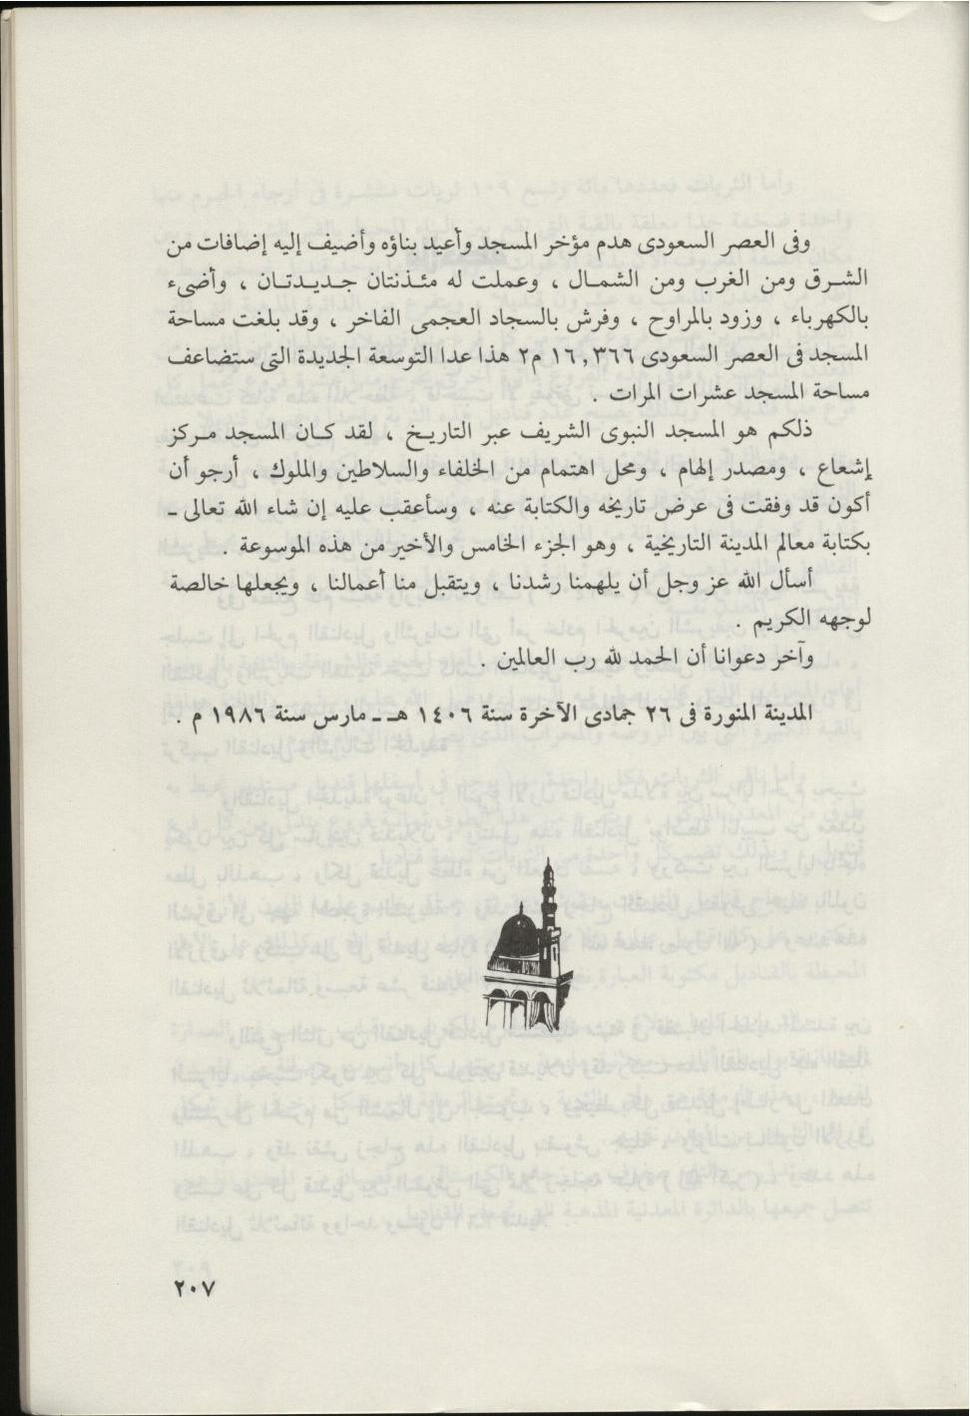 وفى العصر السعودى هدم مؤخر المسجد وأعيد بناؤه وأضيف إليه إضافات من
الشرق ومن الغرب ومن الشمال ، وعملت له مئذنتان جديدتان ، وأضىء
بالكهرباء ، وزود بالمراوح ، وفرش بالسجاد العجمى الفاخر ، وقد بلغت مساحة
المسجد فى العصر السعودى ١٦,٣٦٦ م٢ هذا عدا التوسعة الجديدة التى ستضاعف
مساحة المسجد عشرات المرات .
ذلكم هو المسجد النبوى الشريف عبر التاريخ ، لقد كان المسجد مركز
إشعاع ، ومصدر إلهام ، ومحل اهتمام من الخلفاء والسلاطين والملوك ، أرجو أن
أكون قد وفقت فى عرض تاريخه والكتابة عنه ، وسأعقب عليه إن شاء الله تعالى ـ
بكتابة معالم المدينة التاريخية ، وهو الجزء الخامس والأخير من هذه الموسوعة .
أسأل الله عز وجل أن يلهمنا رشدنا ، ويتقبل منا أعمالنا ، ويجعلها خالصة
لوجهه الكريم .
وآخر دعوانا أن الحمد لله رب العالمين .
المدينة المنورة فى ٢٦ جمادى الآخرة سنة ١٤٠٦ هـ ـ مارس سنة ١٩٨٦ م .
٢٠٧